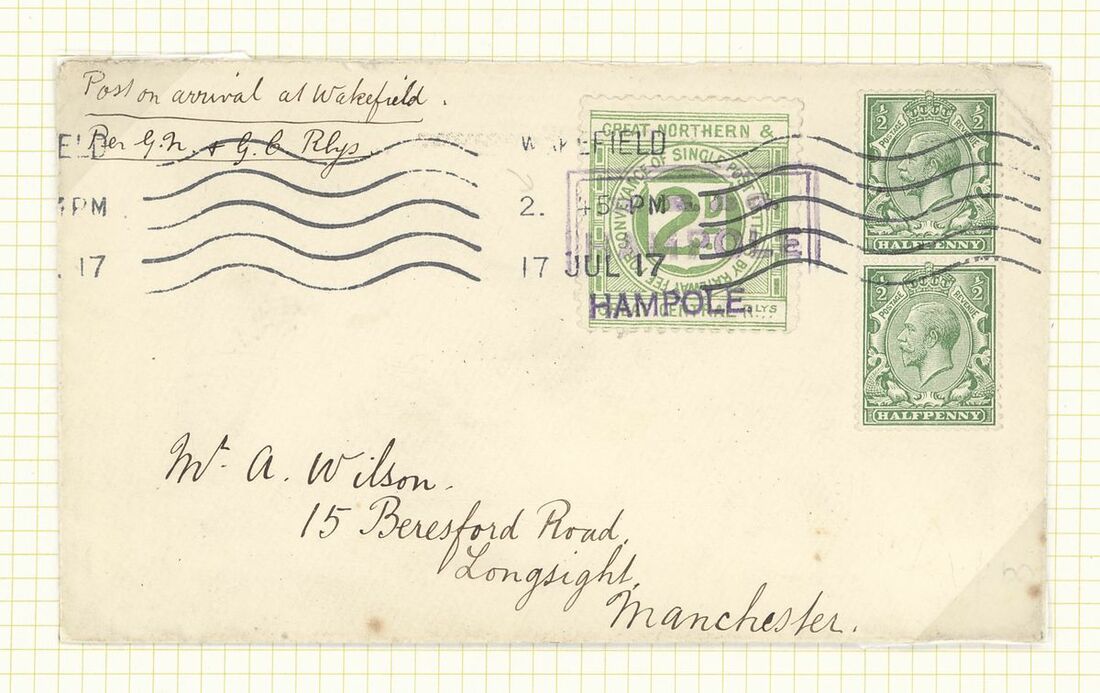 Post on arrival at Wakefield.
Per G.N. & G.C Rlys.
ELD
PM
. 17
WAKEFIELD
2. 45 PM
17 JUL 17
GREAT NORTHERN &
CONVEYANCE OF SINGLE POST LETTERS BY RAILWAY
FEE FOR
2D
GREAT CENTRAL RLYS
HAMPOLE
HAMPOLE.
1/2 1/2
POSTAGE REVENUE
HALFPENNY
1/2 1/2
POSTAGE REVENUE
HALFPENNY
Mr. A. Wilson.
15 Beresford Road,
Longsight,
Manchester.